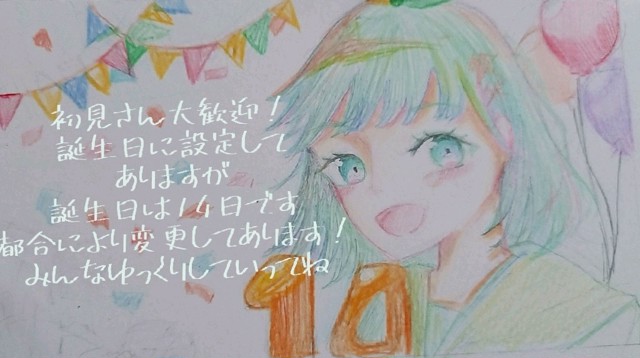 初見さん大歓迎！
誕生日に設定して
ありますが
誕生日は14日です
都合により変更してあります！
みんなゆっくりしていってね
14